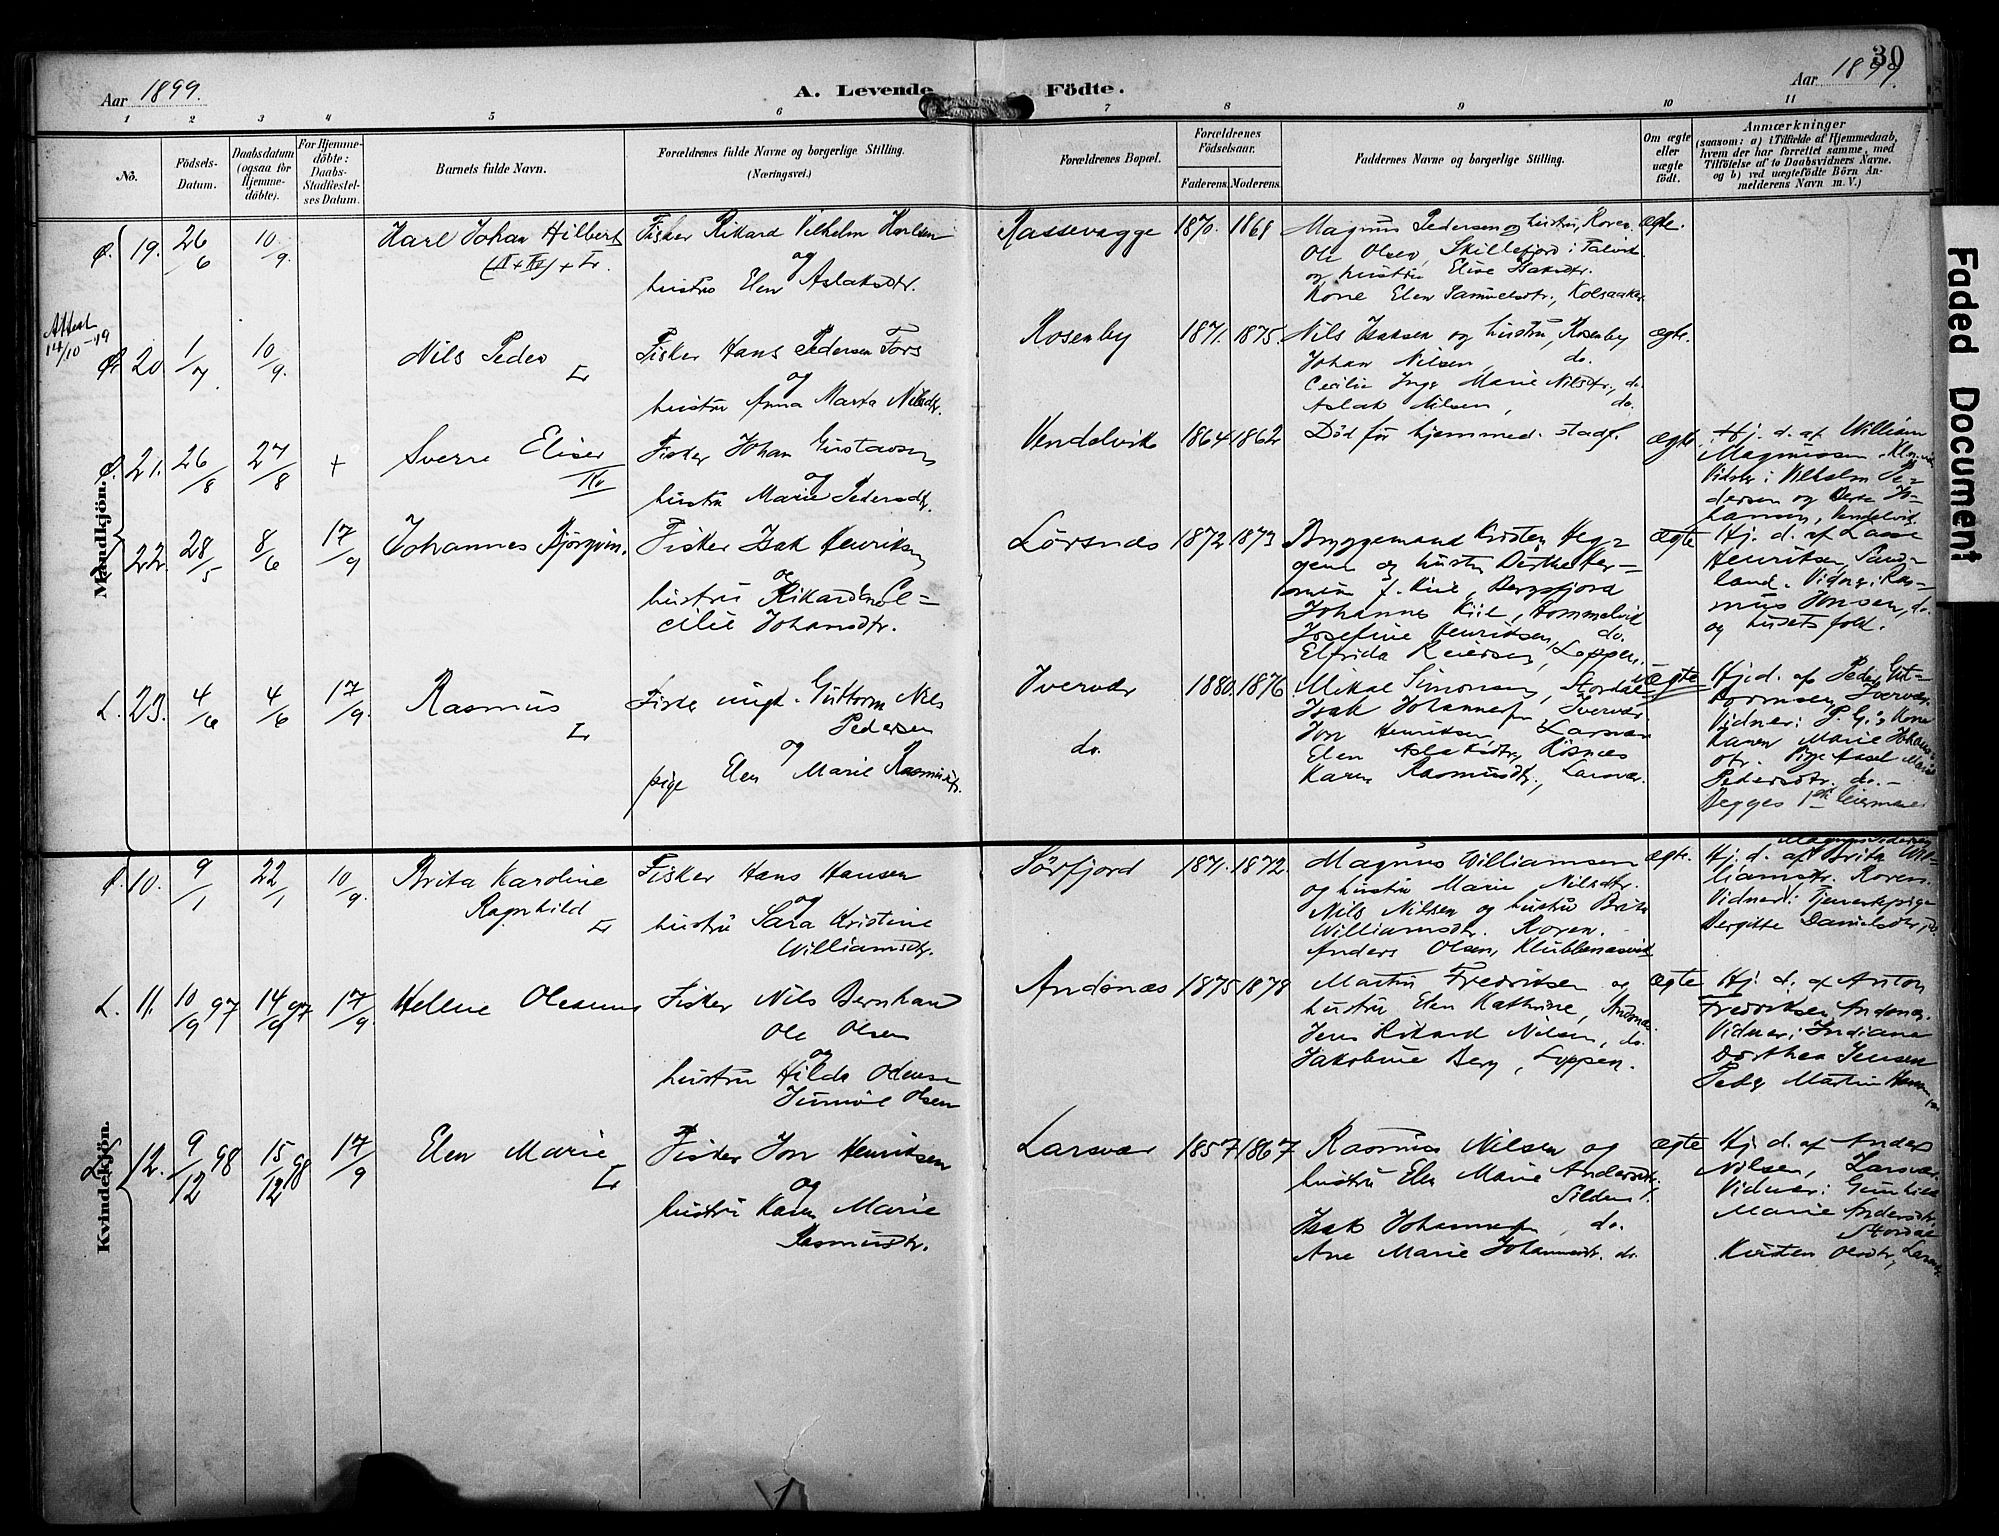 30
Aar 1899.
A. Levende Födte.
Aar 1899.
1 2 3 4 5 6 7 8 9 10 11
No.
Födsels-
Datum.
Daabsdatum
(ogsaa for
Hjemme-
döbte).
For Hjemme-
döbte:
Daabs-
Stadfæstel-
ses Datum.
Barnets fulde Navn.
Forældrenes fulde Navne og borgerlige Stilling.
(Næringsvei.)
Forældrenes Bopæl.
Forældrenes
Födselsaar.
Faderens. Moderens.
Faddernes Navne og borgerlige Stilling.
Om ægte
eller
uægte
födt.
Anmærkninger
(saasom: a) i Tilfælde af Hjemmedaab,
hvem der har forrettet samme, med
Tilföielse af to Daabsvidners Navne.
og b) ved uægtefödte Börn An-
melderens Navn m. V.)
Mandkjön.
19. 26/6 10/9.
Karl Johan Hilbert
Fisker Rikard Vilhelm Karlsen
og
hustru Elen Aslaksdtr.
Rassevagge 1870. 1868
Magnus Pedersen og hustru, Koven.
Ole Olsen, Skillefjord i Talvik
og hustru Elise Isaksdtr.
Kone Elen Samuelsdtr., Kolsaaker
ægte.
Attest
14/10-19
20. 1/7 10/9.
Nils Peder
Fisker Hans Pedersen Fors
og
hustru Anna Marta Nilsdtr.
Rosenby 1871. 1875.
Nils Isaksen og hustru, Rosenby
Johan Nilsen, do.
Cecilie Inga Marie Nilsdtr., do
Aslak Nilsen, do.
ægte.
21. 26/8 27/8 +
Sverre Eliser
Fisker Johan Gustavsen
og
hustru Marie Pedersdtr.
Vendelvik 1864 1862
Död för hjemmed. stadf.
ægte
Hj. d. af William
Magnussen
Vidner: Vilhelm Pe-
dersen og
Vendelvik
22. 28/5 8/6 17/9
Johannes Björgvin.
Fisker Isak Henriksen
og
hustru Rikardine Ce-
cilie Johansdtr.
Lörsnæs 1872 1873
Bryggemand Kristen Heg-
gene og hustru Dorthe Her-
mine f. Kiil, Bergsfjord
Johannes Kiil, Hommelvik
Josefine Henriksen, do.
Elfrida Reiersen, Loppen.
ægte
Hj. d. af Lasse
Henriksen, Sand-
land. Vidner: Ras-
mus Jonsen, do.
og husets folk.
L. 23. 4/6 4/6 17/9.
Rasmus
Fisker ungk. Guttorm Nils
Pedersen
og
pige Elen Marie Rasmusdtr.
Iversvær
do.
1880. 1876.
Mikal Simonsen, Stordal
Isak Johannesen, Iversvær
Jon Henriksen, Larsvær
Elen Aslaksdtr, Rösnæs
Karen Rasmusdtr., Larsvær.
uægte
Hj.d. af Peder Gut-
tormsen, Iversvær.
Vidner: P. G.'s Kone
Karen Marie Johans-
dtr. Pige Marie
Pedersdtr. do.-
Begges 1ste leiermaal
Kvindekjön.
10. 9/1 22/1 10/9.
Brita Karoline
Ragnhild
Fisker Hans Hansen
og
hustru Sara Kristine
Williamsdtr.
Sörfjord 1871. 1872.
Magnus Williamsen
og hustru Marie Nilsdtr.
Nils Nilsen og hustru Brita
Williamsdtr. Koven.
Anders Olsen, Klubbenæsvik
ægte.
Hj. d. af Brita Wil-
liamsdtr. Koven.
Vidner: Tjenestepige
Bergitte Danielsdtr, do.
L. 11. 10/9 97 14/9 97 17/9.
Helene Olesine
Fisker Nils Bernhard
Ole Olsen
og
hustru Hilda Odense
Olsen
Andsnæs 1875 1878
Martin Fredriksen og
hustru Elen Kathrine, Andsnæs.
Jens Rikard Nilsen, do.
Jakobine Berg, Loppen.
ægte
Hj. d. af Anton
Fredriksen, Andsnæs.
Vidner: Indiane
Dorthea Jensen
Peder Martin Hansen
L. 12. 9/12 98 15/12 98 17/9
Elen Marie
Fisker Jon Henriksen
og
hustru Karen Marie
Rasmusdtr.
Larsvær 1857 1867
Rasmus Nilsen og
hustru Elen Marie Andersdtr.
Silden.
Isak Johannesen, do.
Ane Marie Johannesdtr. do.
ægte
Hj. d. af Anders
Nilsen, Larsvær.
Vidner: Gunhild
Marie Andersdtr,
Stordal
Kirsten Olsdtr, Larsvær
Faded Document